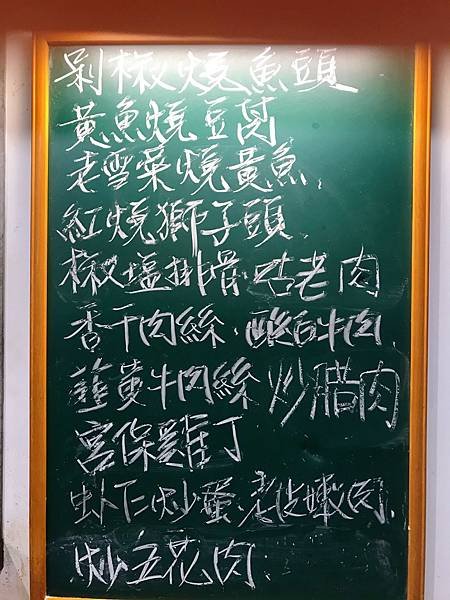 剁椒燒魚頭
黃魚燒豆腐
老雪菜燒黃魚
紅燒獅子頭
椒塩排骨 咕老肉
香干肉絲 酸白牛肉
韮黃牛肉絲 炒腊肉
宮保雞丁
虾仁炒蛋 老皮嫩肉
炒五花肉